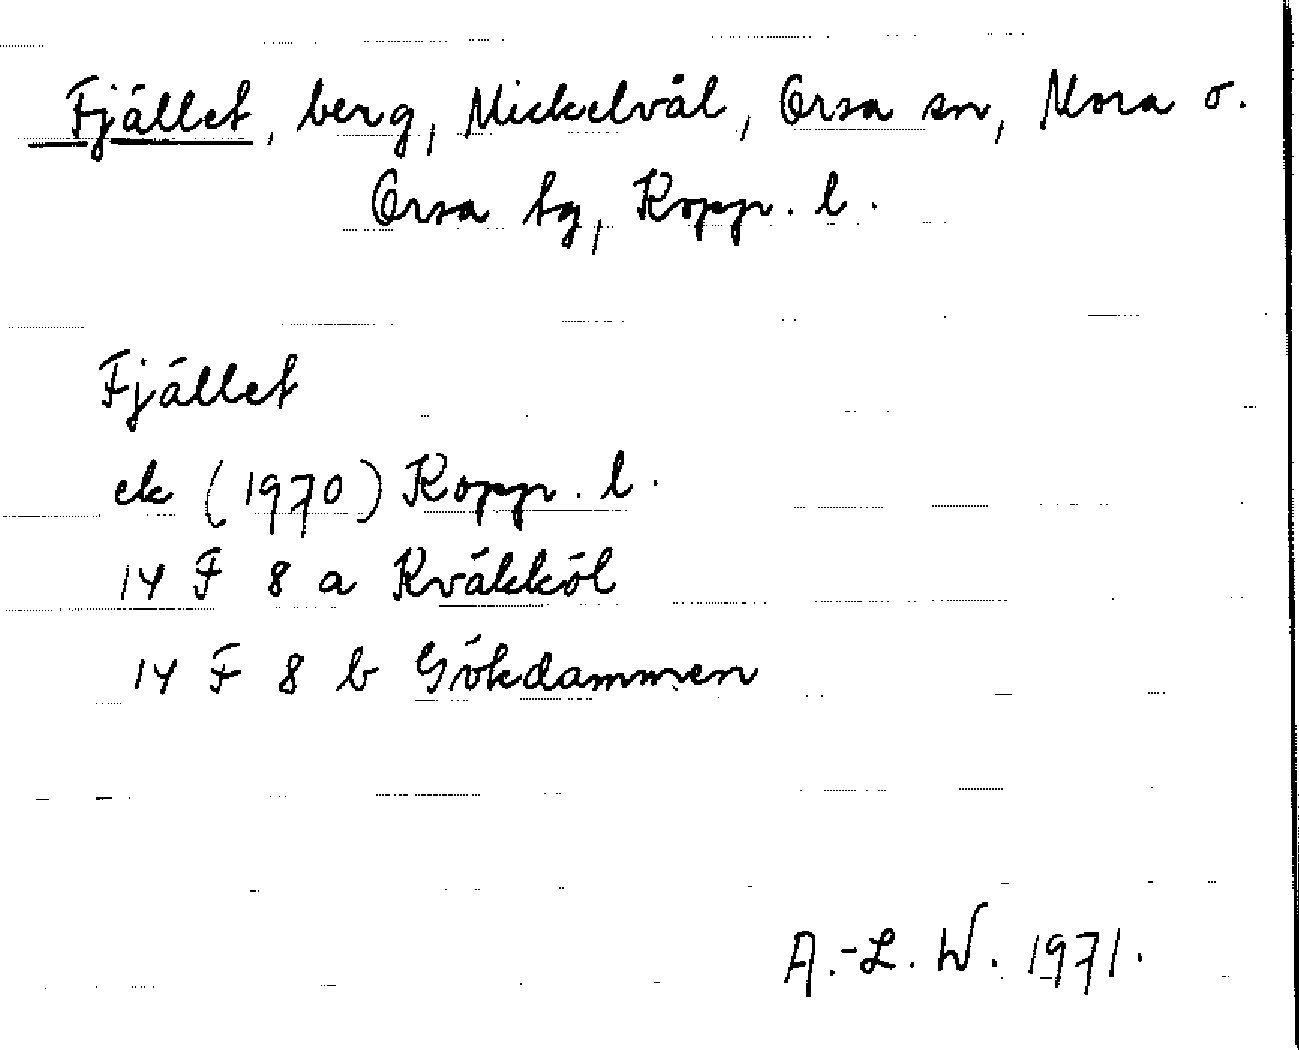 Fjället, berg, Mickelvål, Orsa sn, Mora o.
Orsa tg, Kopp. l.
Fjället
ek (1970) Kopp. l.
14 F 8 a Kväkköl
14 F 8 b Gökdammen
A.-L. W. 1971.